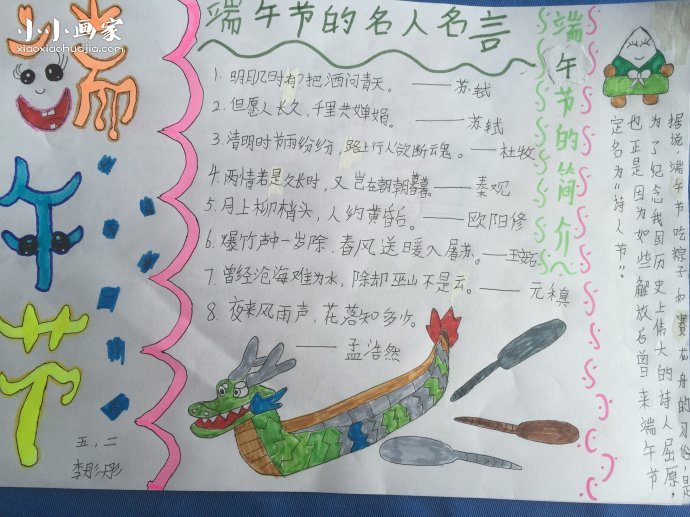 小小画家
xiaoxiaohuajia.com
端午节
五，二
李彤彤
端午节的名人名言
1. 明月几时有？把酒问青天。——苏轼
2. 但愿人长久，千里共婵娟。——苏轼
3. 清明时节雨纷纷，路上行人欲断魂。——杜牧
4. 两情若是久长时，又岂在朝朝暮暮。——秦观
5. 月上柳梢头，人约黄昏后。——欧阳修
6. 爆竹声中一岁除，春风送暖入屠苏。——王安石
7. 曾经沧海难为水，除却巫山不是云。——元稹
8. 夜来风雨声，花落知多少。
——孟浩然
端午节的简介
据说，端午节吃粽子和赛龙舟的习俗，是
为了纪念我国历史上伟大的诗人屈原，
也正是因为如些解放后曾来端午节
定名为“诗人节”。